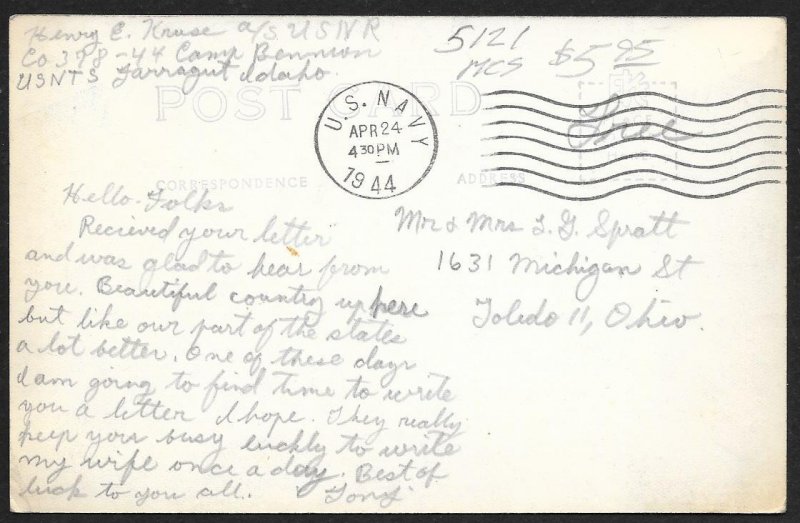 Henry E. Kruse a/s USNR
Co 398-44 Camp Bennion
USNTS Farragut Idaho
5121
MCS
$5.95
POST CARD
U.S. NAVY
APR 24
4 30 PM
1944
Free
PLACE
HERE
CORRESPONDENCE
ADDRESS
Hello Folks
Recieved your letter
and was glad to hear from
you. Beautiful country up here
but like our part of the states
a lot better. One of these days
I am going to find time to write
you a letter I hope. They really
keep you busy luckly to write
my wife once a day. Best of
luck to you all. Tony
Mr & Mrs L. G. Spratt
1631 Michigan St
Toledo 11, Ohio.